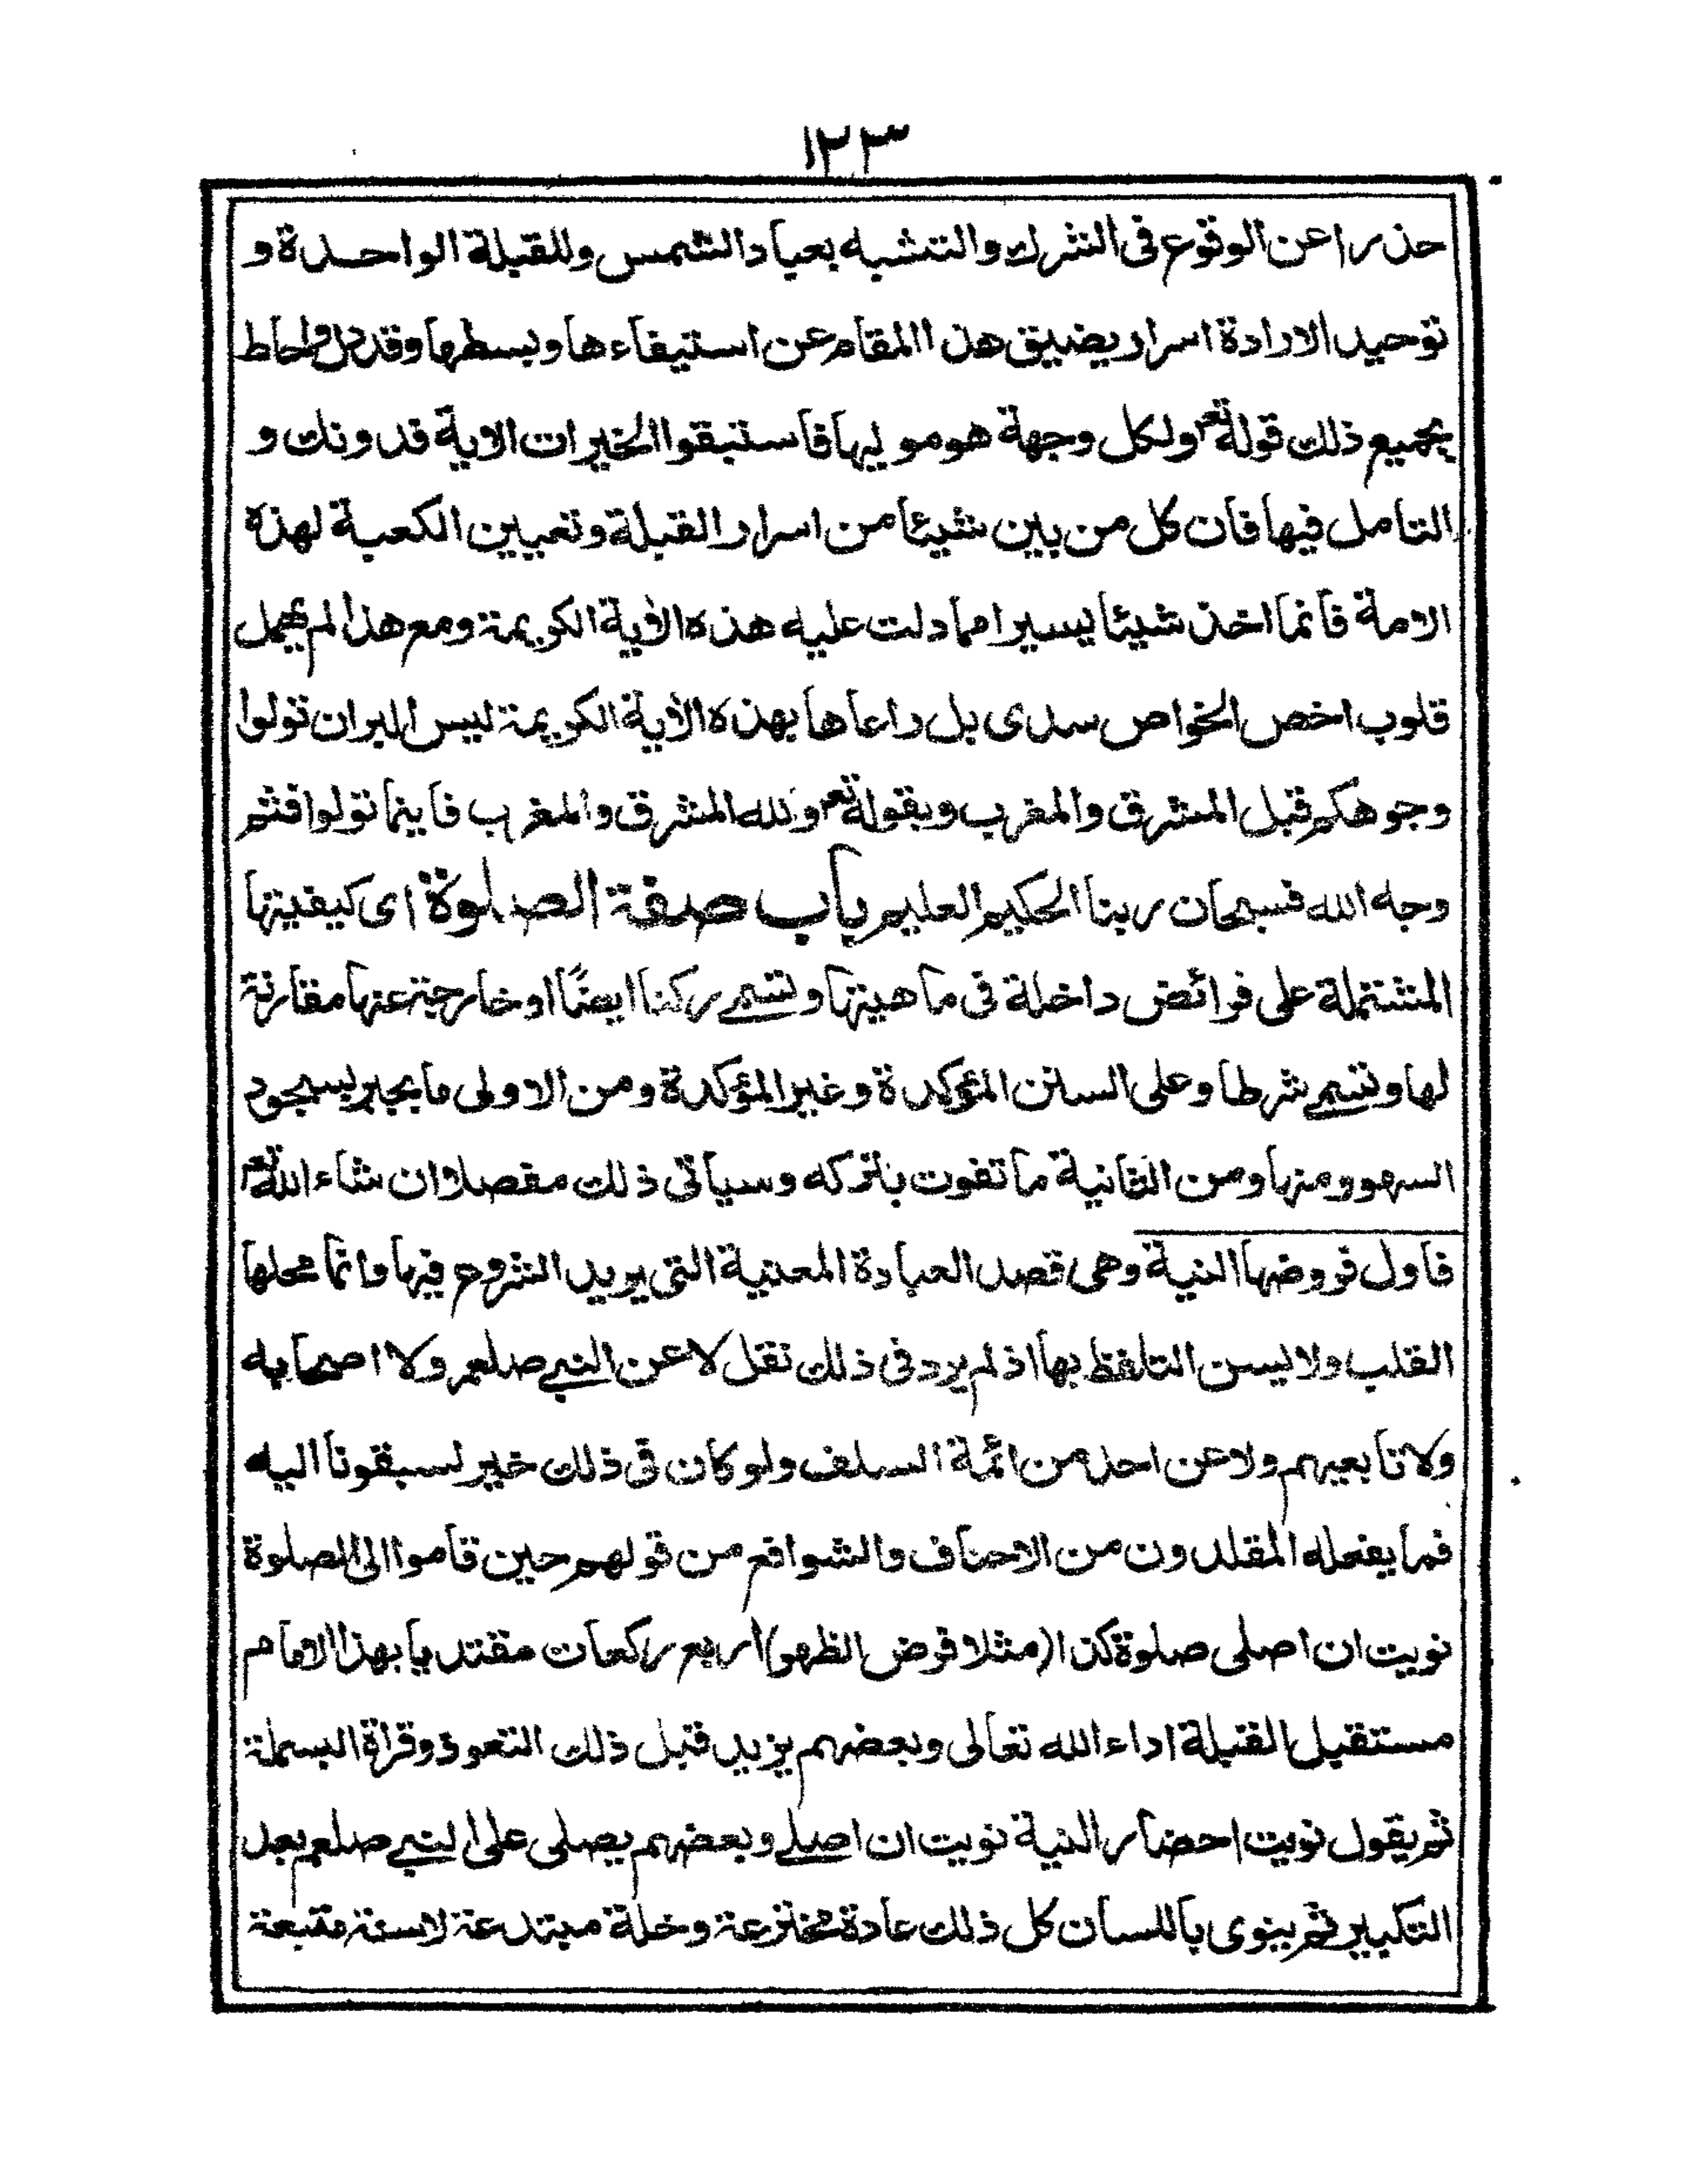 ١٢٣
حذرا عن الوقوع فى الشرك والتشبه بعباد الشمس وللقبلة الواحدة و
توحيد الارادة اسرار يضيق هذا المقام عن استيفاءها وبسطها وقد دل واحاط
بجميع ذلك قوله تعم ولكل وجهة هو موليها فاستبقوا الخيرات الاية فدونك و
التامل فيها فان كل من بين شيئا من اسرار القبلة وتعيين الكعبة لهذه
الامة فانما اخذ شيئا يسيرا مما دلت عليه هذه الاية الكريمة ومع هذا لم يهمل
قلوب اخص الخواص سدى بل راعاها بهذه الاية الكريمة ليس البر ان تولوا
وجوهكم قبل المشرق والمغرب وبقوله تعم ولله المشرق والمغرب فاينما تولوا فثم
وجه الله فسبحان ربنا الحكيم العليم باب صفة الصلوة اى كيفيتها
المشتملة على فرائض داخلة فى ماهيتها وتسمى ركنا ايضًا او خارجة عنها مقارنة
لها وتسمى شرطا وعلى السنن المؤكدة وغير المؤكدة ومن الاولى ما يجبر بسجود
السهو ومنها ومن الثانية ما تفوت بتركه وسياتى ذلك مفصلا ان شاء الله تعم
فاول فروضها النية وهى قصد العبادة المعنية التى يريد الشروع فيها وانما محلها
القلب ولا يسن التلفظ بها اذ لم يرد فى ذلك نقل لا عن النبى صلعم ولا اصحابه
ولا تابعيهم ولا عن احد من ائمة السلف ولو كان فى ذلك خير لسبقونا اليه
فما يفعله المقلدون من الاحناف والشوافع من قولهم حين قاموا الى الصلوة
نويت ان اصلى صلوة كذا (مثلا فرض الظهر) اربع ركعات مقتديا بهذا الامام
مستقبل القبلة اداء الله تعالى وبعضهم يزيد قبل ذلك التعوذ وقراة البسملة
ثم يقول نويت احضار النية نويت ان اصلى وبعضهم يصلى على النبى صلعم بعد
التكبير ثم ينوى باللسان كل ذلك عادة مخترعة وخلة مبتدعة لا سنة متبعة